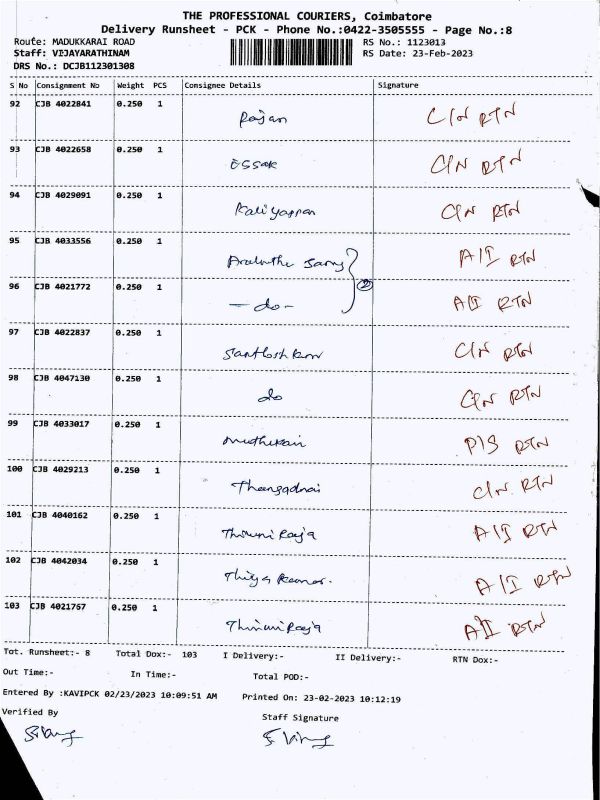 THE PROFESSIONAL COURIERS, Coimbatore
Delivery Runsheet - PCK - Phone No.:0422-3505555 - Page No.:8
Route: MADUKKARAI ROAD RS No.: 1123013
Staff: VIJAYARATHINAM RS Date: 23-Feb-2023
DRS No.: DCJB112301308
S No Consignment No Weight PCS Consignee Details Signature
92 CJB 4022841 0.250 1 Rajan C/N RTN
93 CJB 4022658 0.250 1 Essak C/N RTN
94 CJB 4029091 0.250 1 Kaliyappan C/N RTN
95 CJB 4033556 0.250 1 Samy A/I RTN
96 CJB 4021772 0.250 1 - do - 2 A/I RTN
97 CJB 4022837 0.250 1 C/N RTN
98 CJB 4047130 0.250 1 do C/N RTN
99 CJB 4033017 0.250 1 P/S RTN
100 CJB 4029213 0.250 1 C/N RTN
101 CJB 4040162 0.250 1 A/I RTN
102 CJB 4042034 0.250 1 A/I RTN
103 CJB 4021767 0.250 1 A/I RTN
Tot. Runsheet:- 8 Total Dox:- 103 I Delivery:- II Delivery:- RTN Dox:-
Out Time:- In Time:- Total POD:-
Entered By :KAVIPCK 02/23/2023 10:09:51 AM Printed On: 23-02-2023 10:12:19
Verified By Staff Signature